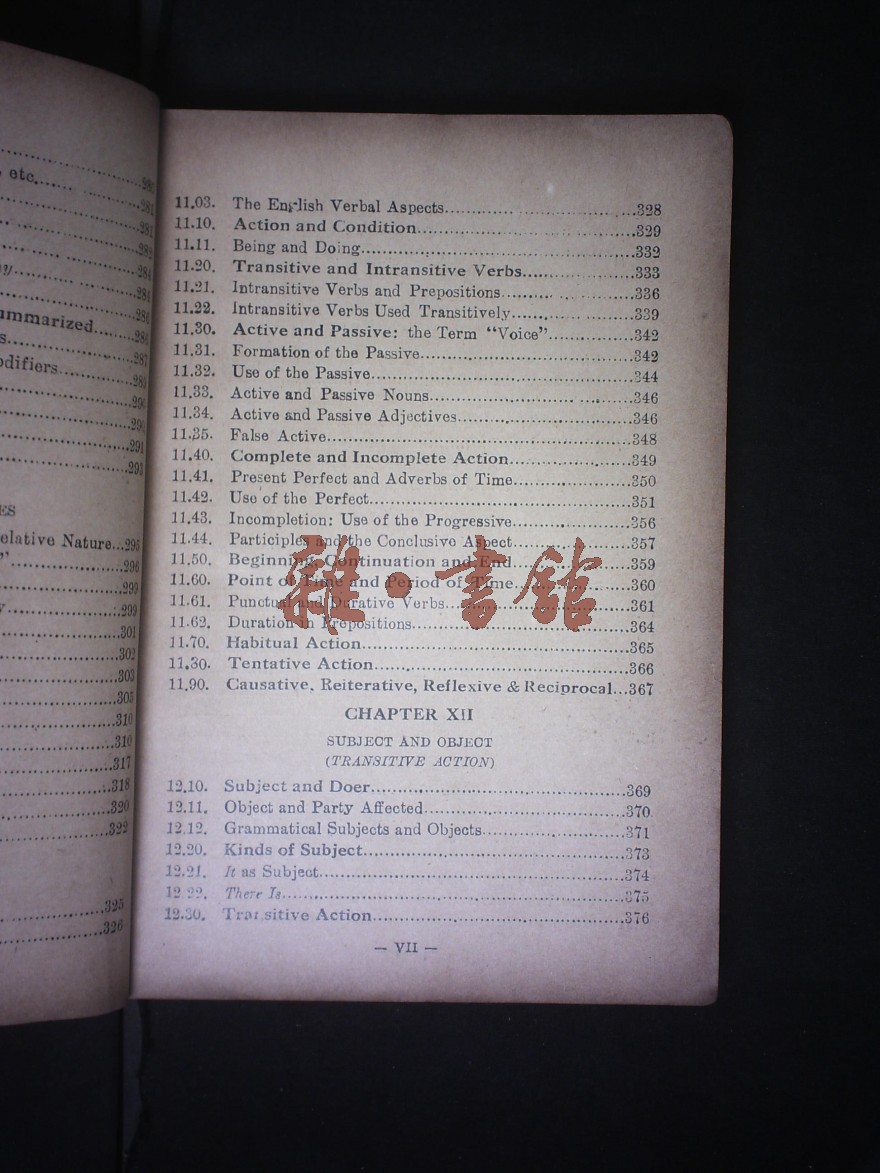 etc.......
281
283
284
284
ummarized........286
287
odifiers
290
291
293
ES
elative Nature...295
296
299
299
301
302
303
305
310
310
317
318
320
322
325
326
11.03. The English Verbal Aspects.....................328
11.10. Action and Condition.....................329
11.11. Being and Doing.....................332
11.20. Transitive and Intransitive Verbs.....................333
11.21. Intransitive Verbs and Prepositions.....................336
11.22. Intransitive Verbs Used Transitively.....................339
11.30. Active and Passive: the Term “Voice”.....................342
11.31. Formation of the Passive.....................342
11.32. Use of the Passive.....................344
11.33. Active and Passive Nouns.....................346
11.34. Active and Passive Adjectives.....................346
11.35. False Active.....................348
11.40. Complete and Incomplete Action.....................349
11.41. Present Perfect and Adverbs of Time.....................350
11.42. Use of the Perfect.....................351
11.43. Incompletion: Use of the Progressive.....................356
11.44. Participles and the Conclusive Aspect.....................357
11.50. Beginning, Continuation and End.....................359
11.60. Point of Time and Period of Time.....................360
11.61. Punctual and Durative Verbs.....................361
11.62. Duration in Prepositions.....................364
11.70. Habitual Action.....................365
11.30. Tentative Action.....................366
11.90. Causative, Reiterative, Reflexive & Reciprocal...367
雜·書館
CHAPTER XII
SUBJECT AND OBJECT
(TRANSITIVE ACTION)
12.10. Subject and Doer.....................369
12.11. Object and Party Affected.....................370
12.12. Grammatical Subjects and Objects.....................371
12.20. Kinds of Subject.....................373
12.21. It as Subject.....................374
12.22. There Is.....................375
12.30. Transitive Action.....................376
— VII —